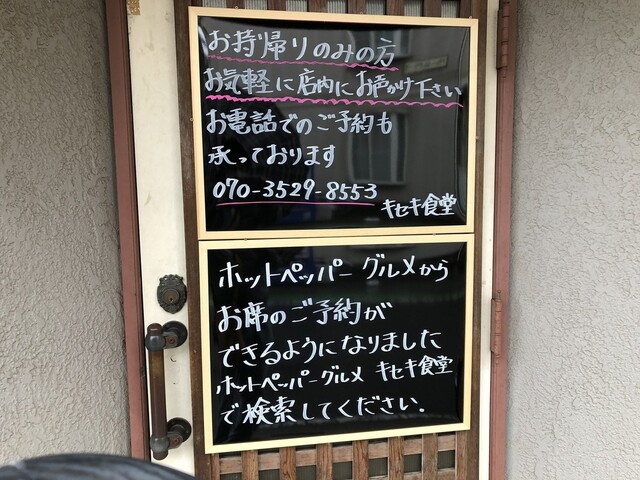 お持帰りのみの方
お気軽に店内にお声かけ下さい
お電話でのご予約も
承っております
070-3529-8553
キセキ食堂
ホットペッパーグルメから
お席のご予約が
できるようになりました
ホットペッパーグルメ キセキ食堂
で検索してください.